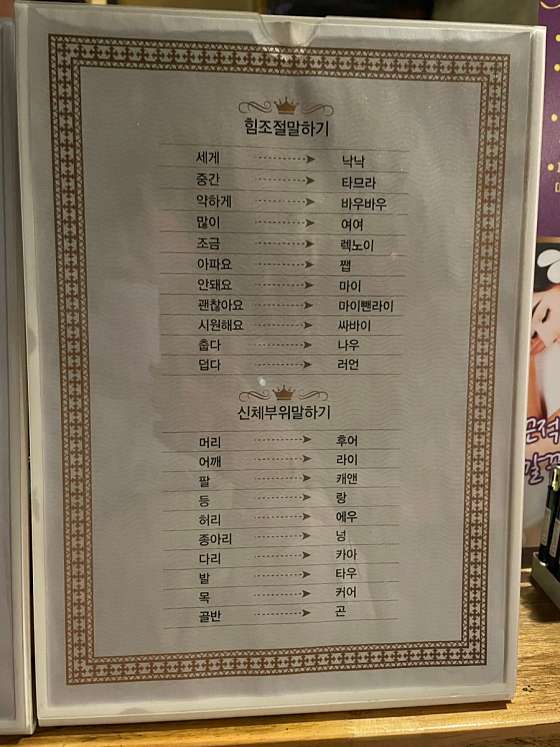 힘조절말하기
세게 낙낙
중간 타므라
약하게 바우바우
많이 여여
조금 렉노이
아파요 쨉
안돼요 마이
괜찮아요 마이뺀라이
시원해요 싸바이
춥다 나우
덥다 러언
신체부위말하기
머리 후어
어깨 라이
팔 캐앤
등 랑
허리 에우
종아리 넝
다리 카아
발 타우
목 커어
골반 곤
근적